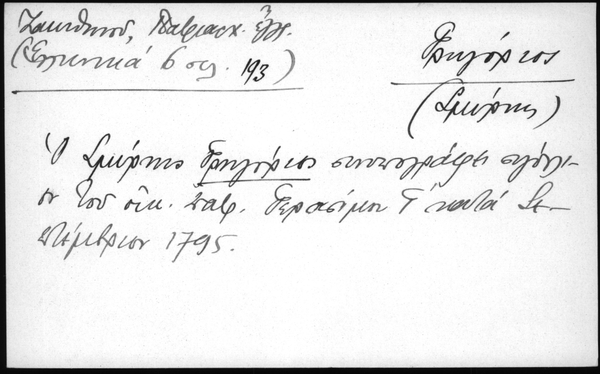 Ζακυθηνοῦ, Πατριαρχ. ἔγγ.
(Ἑλληνικά 6 σελ. 193)
Γρηγόριος
(Σμύρνης)
Ὁ Σμύρνης Γρηγόριος συνυπογράφει σιγίλλι-
ον τοῦ οἰκ. πατρ. Γερασίμου Γ΄ κατά Σε-
πτέμβριον 1795.